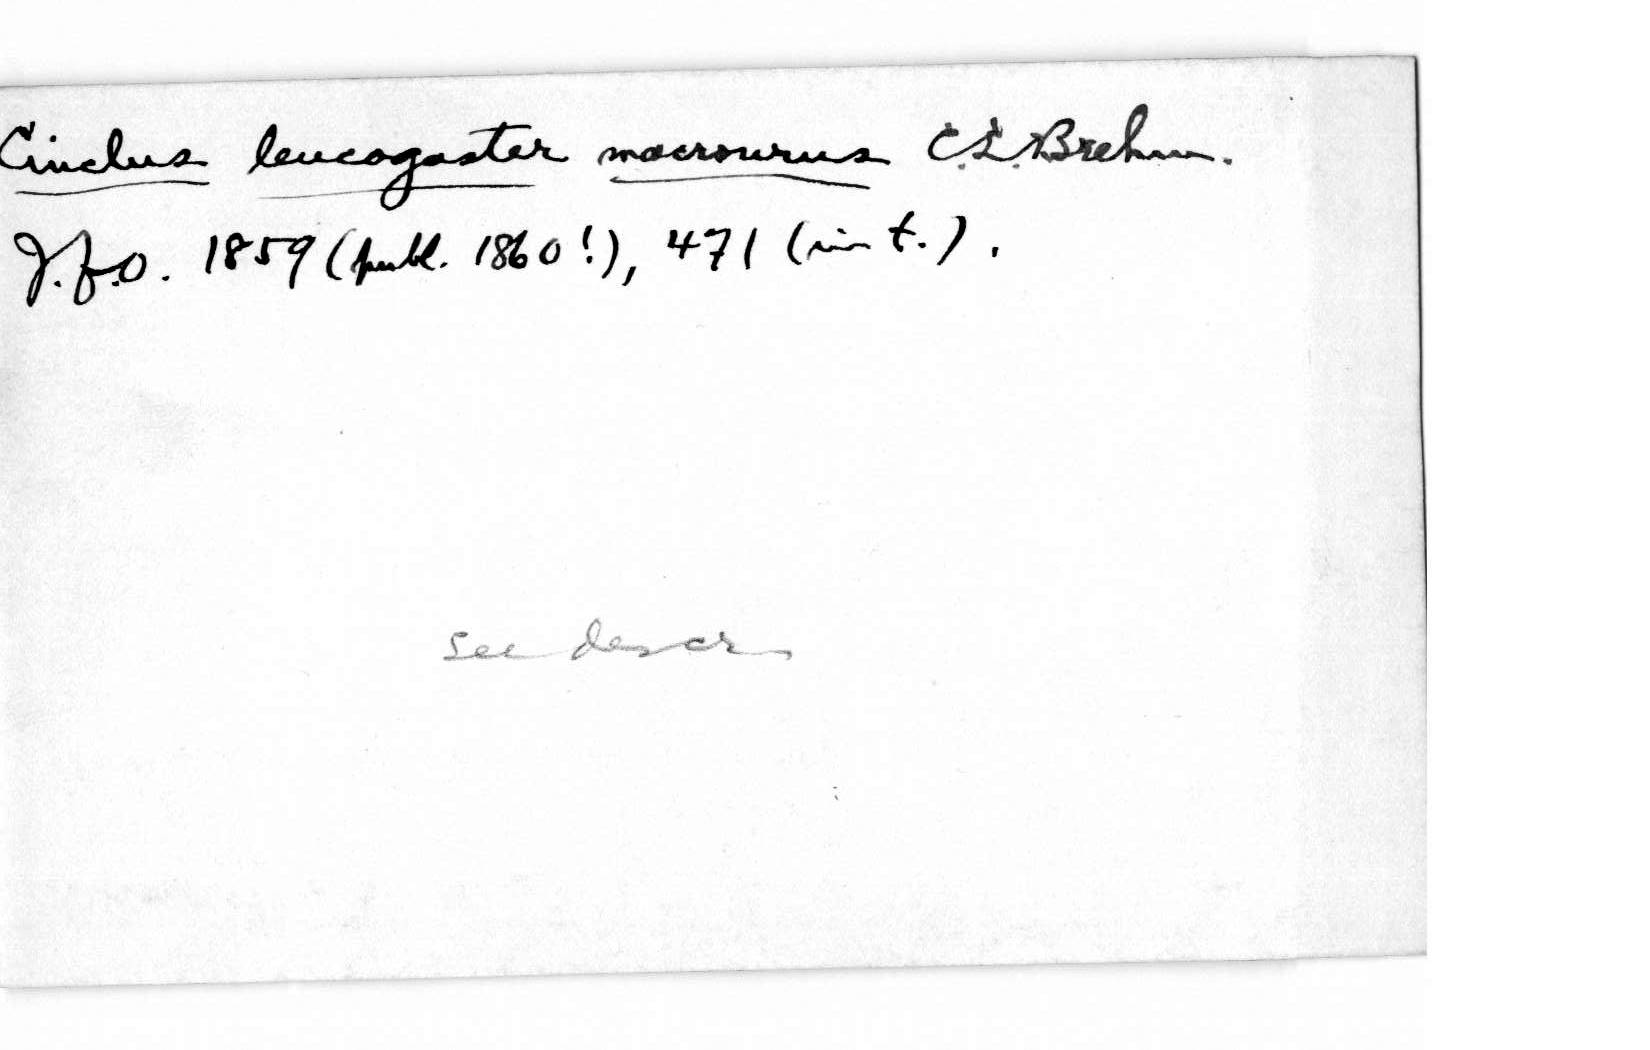 Cinclus leucogaster macrourus C.L.Brehm.
J.f.O. 1859 (publ. 1860!), 471 (in t.).
see descr